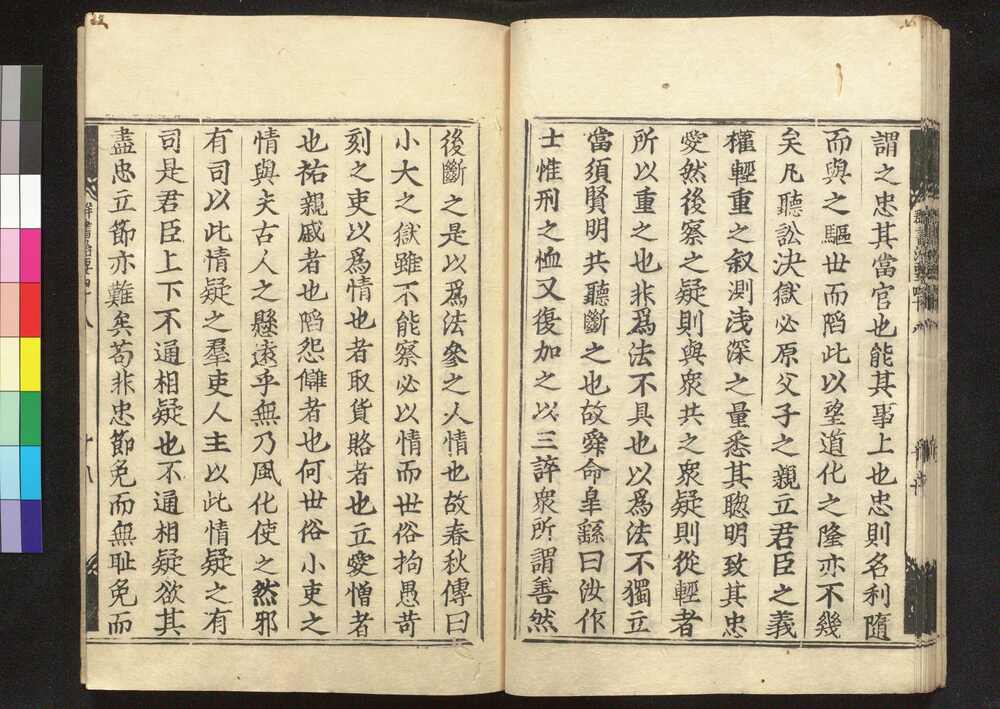 謂之忠其當官也能其事上也忠則名利隨
而與之驅世而陷此以望道化之隆亦不幾
矣凡聽訟决獄必原父子之親立君臣之義
權輕重之叙測淺深之量悉其聰明致其忠
愛然後察之疑則與衆共之衆疑則從輕者
所以重之也非爲法不具也以爲法不獨立
當須賢明共聽斷之也故舜命皐繇曰汝作
士惟刑之恤又復加之以三訊衆所謂善然
後斷之是以爲法參之人情也故春秋傳曰
小大之獄雖不能察必以情而世俗拘愚苛
刻之吏以爲情也者取貨賂者也立愛憎者
也祐親戚者也陷怨讎者也何世俗小吏之
情與夫古人之懸遠乎無乃風化使之然邪
有司以此情疑之羣吏人主以此情疑之有
司是君臣上下不通相疑也不通相疑欲其
盡忠立節亦難矣苟非忠節免而無耻免而
群書治要四十八
十八